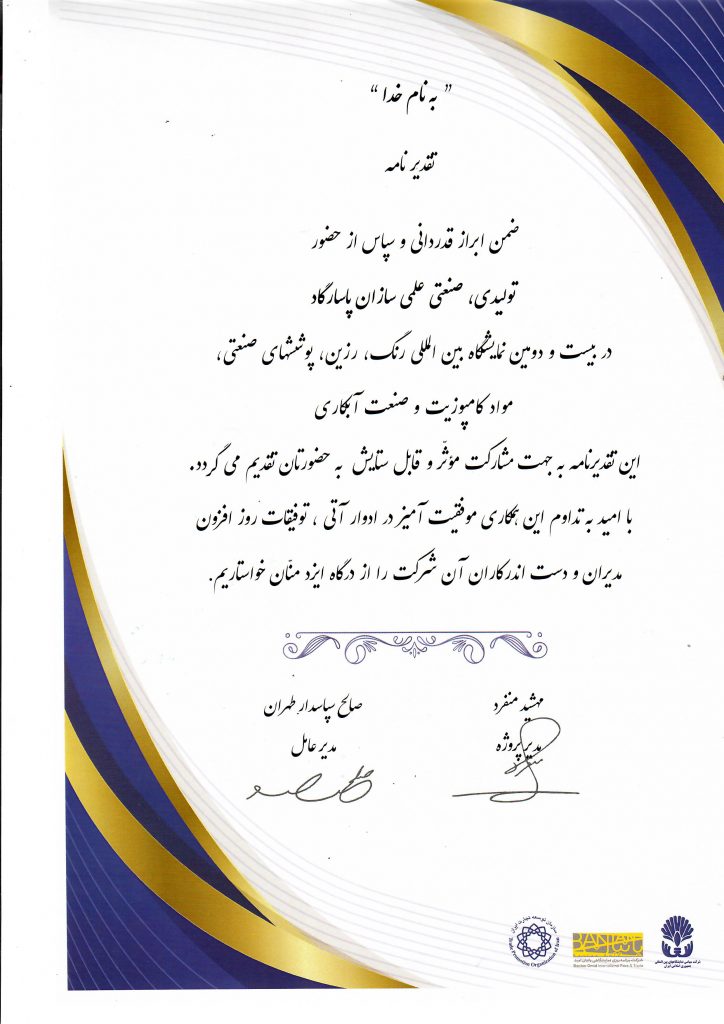 " به نام خدا "
تقدیر نامه
ضمن ابراز قدردانی و سپاس از حضور
تولیدی، صنعتی علمی سازان پاسارگاد
در بیست و دومین نمایشگاه بین المللی رنگ، رزین، پوششهای صنعتی،
مواد کامپوزیت و صنعت آبکاری
این تقدیرنامه به جهت مشارکت مؤثّر و قابل ستایش به حضورتان تقدیم می گردد.
با امید به تداوم این همکاری موفقیت آمیز در ادوار آتی ، توفیقات روز افزون
مدیران و دست اندرکاران آن شرکت را از درگاه ایزد منّان خواستاریم.
مهشید منفرد
مدیر پروژه
صالح سپاسدار طهران
مدیر عامل
سازمان توسعه تجارت ایران
Trade Promotion Organization of Iran
شرکت سهامی نمایشگاههای بین المللی
جمهوری اسلامی ایران